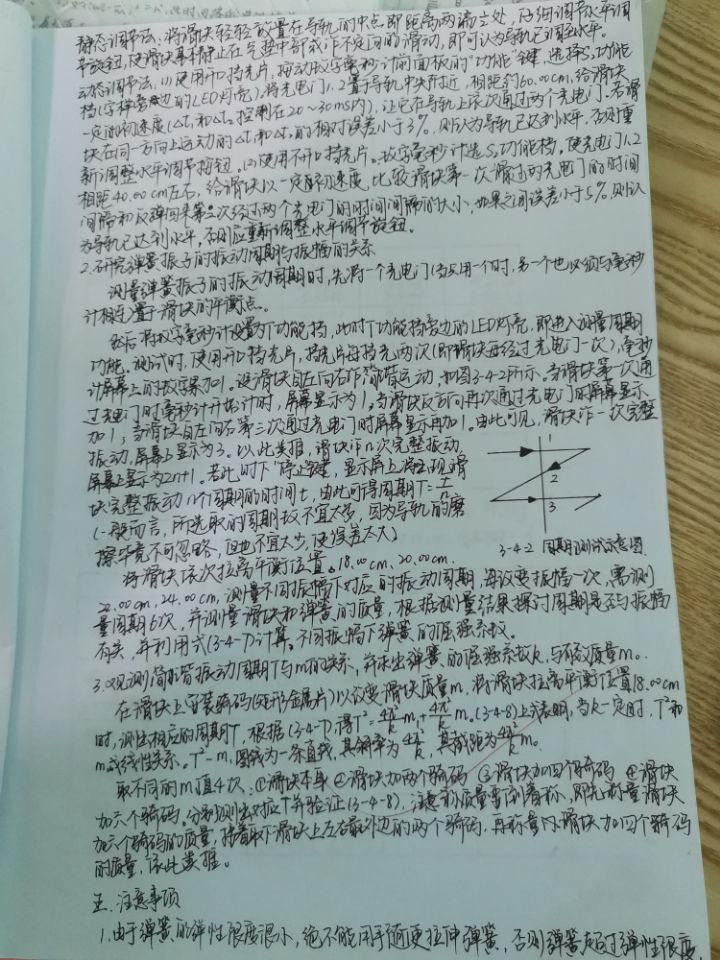 静态调节法:将滑块轻轻放置在导轨的中点即距离两端
节旋钮,使滑块基本静止在气垫中部或作不定向的滑动,即可认为导轨已调至水平。
动态调节法:(1)使用开口挡光片,按动数字毫秒计面板的"功能"键,选择S₂功能
档(字样旁边的LED灯亮),将光电门1、2置于导轨中央附近,相距约60.00cm,给滑块
一定的初速度(Δt₁和Δt₂控制在20~30ms内),让它在导轨上依次通过两个光电门。若滑
块在同一方向上运动的Δt₁和Δt₂的相对误差小于3%,则认为导轨已达到水平,否则重
新调整水平调节旋钮。(2)使用不开口挡光片。数字毫秒计选S₁功能档。使光电门1、2
相距40.00cm左右,给滑块以一定的初速度,比较滑块第一次滑过两光电门的时间
间隔和反弹回来第二次经过两个光电门的时间间隔的大小,如果之间误差小于5%,则认
为导轨已达到水平,否则应重新调整水平调节旋钮。
2.研究弹簧振子的振动周期与振幅的关系
测量弹簧振子的振动周期时,先将一个光电门(当只用一个时,另一个也必须与毫秒
计相连)置于滑块的平衡点。
然后将数字毫秒计设置为T功能档,此时T功能档旁边的LED灯亮,即进入测量周期
功能。测试时,使用开口挡光片,挡光片每挡光两次(即滑块每经过光电门一次),毫秒
计屏幕上的数字累加1。设滑块自左向右作简谐运动,如图3-4-2所示。当滑块第一次通
过光电门时毫秒计开始计时,屏幕显示为1。当滑块反方向再次通过光电门时屏幕显示
加1,当滑块自左向右第三次通过光电门时屏幕显示再加1。由此可见,滑块作一次完整
振动,屏幕上显示为3。以此类推,滑块作n次完整振动,
屏幕上显示为2n+1。若此时下"停止"键,显示屏上将出现滑
块完整振动n个周期的时间t,由此可得周期T=t/n
(一般而言,所选取的周期数不宜太多,因为导轨的磨
擦毕竟不可忽略,但也不宜太少,使误差太大)
1
2
3
3-4-2 周期测试示意图
将滑块依次拉离平衡位置。18.00cm、20.00cm、
22.00cm、24.00cm,测量不同振幅下对应的振动周期,每改变振幅一次,需测
量周期6次,并测量滑块和弹簧的质量,根据测量结果探讨周期是否与振幅
有关,并利用式(3-4-7)计算。不同振幅下弹簧的倔强系数。
3.观测简谐振动周期T与m的关系,并求出弹簧的倔强系数k,与有效质量m₀。
在滑块上安装骑码(矩形金属片)以改变滑块质量m,将滑块拉离平衡位置18.00cm
时,测出相应的周期T,根据(3-4-7),得T²=4π²/k m₁+4π²/k m₀(3-4-8)上式表明,当k一定时,T²和
m成线性关系。T²-m₁图线为一条直线,其斜率为4π²/k,其截距为4π²/k m₀
取不同的m₁值4次:①滑块本身 ②滑块加两个骑码 ③滑块加四个骑码 ④滑块
加六个骑码。分别测出对应T并验证(3-4-8),注意称质量要倒着称,即先称量滑块
加六个骑码的质量,接着取下滑块上左右最外边的两个骑码,再称量为滑块加四个骑码
的质量,依此类推。
五、注意事项
1.由于弹簧的弹性限度很小,绝不能用手随便拉伸弹簧,否则弹簧超过弹性限度,